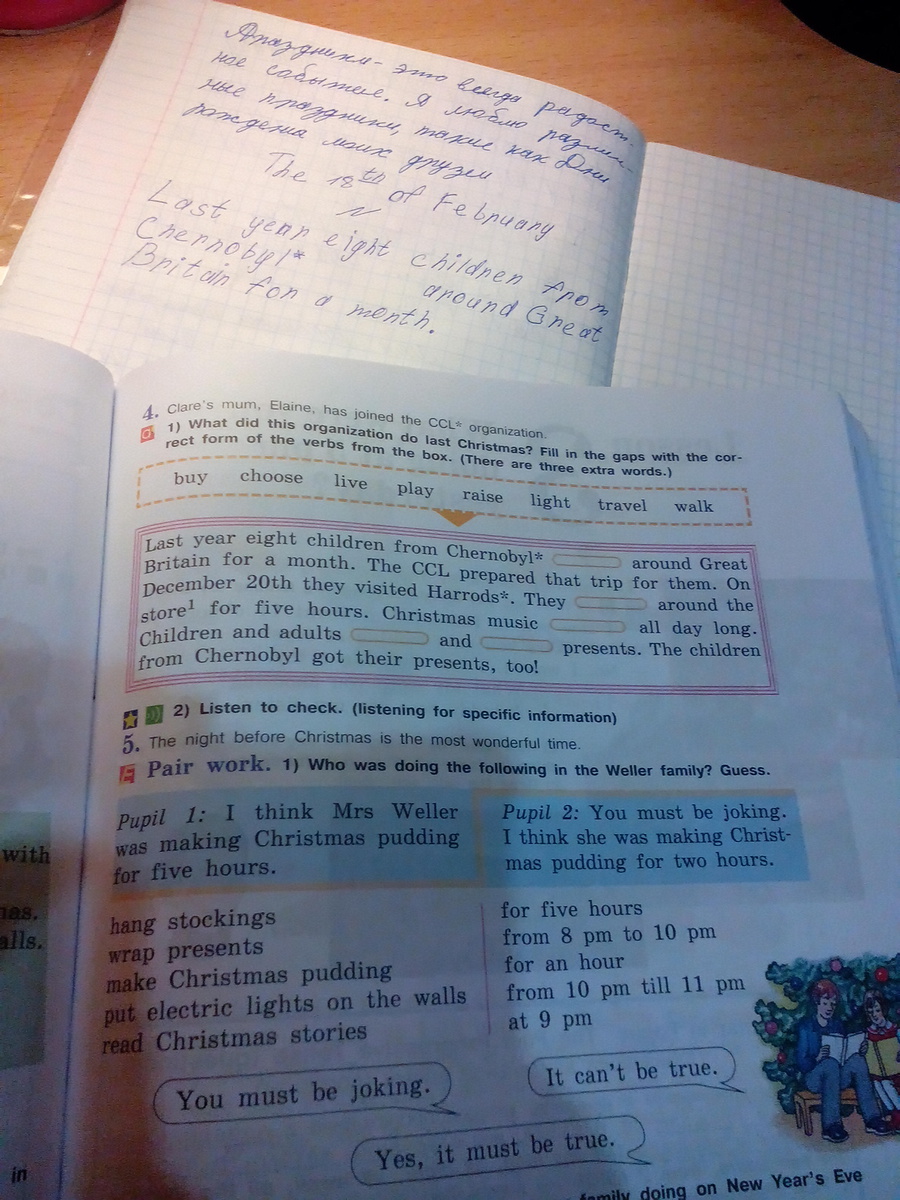 Праздники - это всегда радост-
ное событие. Я люблю различ-
ные праздники, такие как Дни
рождения моих друзей
The 18th of February
Last year eight children from
Chernobyl* around Great
Britain for a month.
4. Clare's mum, Elaine, has joined the CCL* organization.
1) What did this organization do last Christmas? Fill in the gaps with the cor-
rect form of the verbs from the box. (There are three extra words.)
buy choose live play raise light travel walk
Last year eight children from Chernobyl* around Great
Britain for a month. The CCL prepared that trip for them. On
December 20th they visited Harrods*. They around the
store¹ for five hours. Christmas music all day long.
Children and adults and presents. The children
from Chernobyl got their presents, too!
2) Listen to check. (listening for specific information)
5. The night before Christmas is the most wonderful time.
Pair work. 1) Who was doing the following in the Weller family? Guess.
Pupil 1: I think Mrs Weller
was making Christmas pudding
for five hours.
Pupil 2: You must be joking.
I think she was making Christ-
mas pudding for two hours.
with
alls.
hang stockings
wrap presents
make Christmas pudding
put electric lights on the walls
read Christmas stories
for five hours
from 8 pm to 10 pm
for an hour
from 10 pm till 11 pm
at 9 pm
You must be joking.
It can't be true.
Yes, it must be true.
in
family doing on New Year's Eve